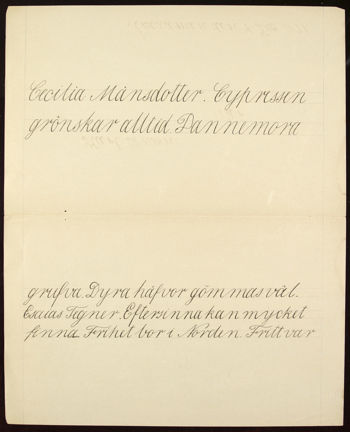 Cecilia Månsdotter. Cypressen
grönskar alltid. Dannemora
grufva. Dyra håfvor gömmas väl.
Esaias Tegner. Eftersinna kan mycket
finna. Frihet bor i Norden. Fritt var